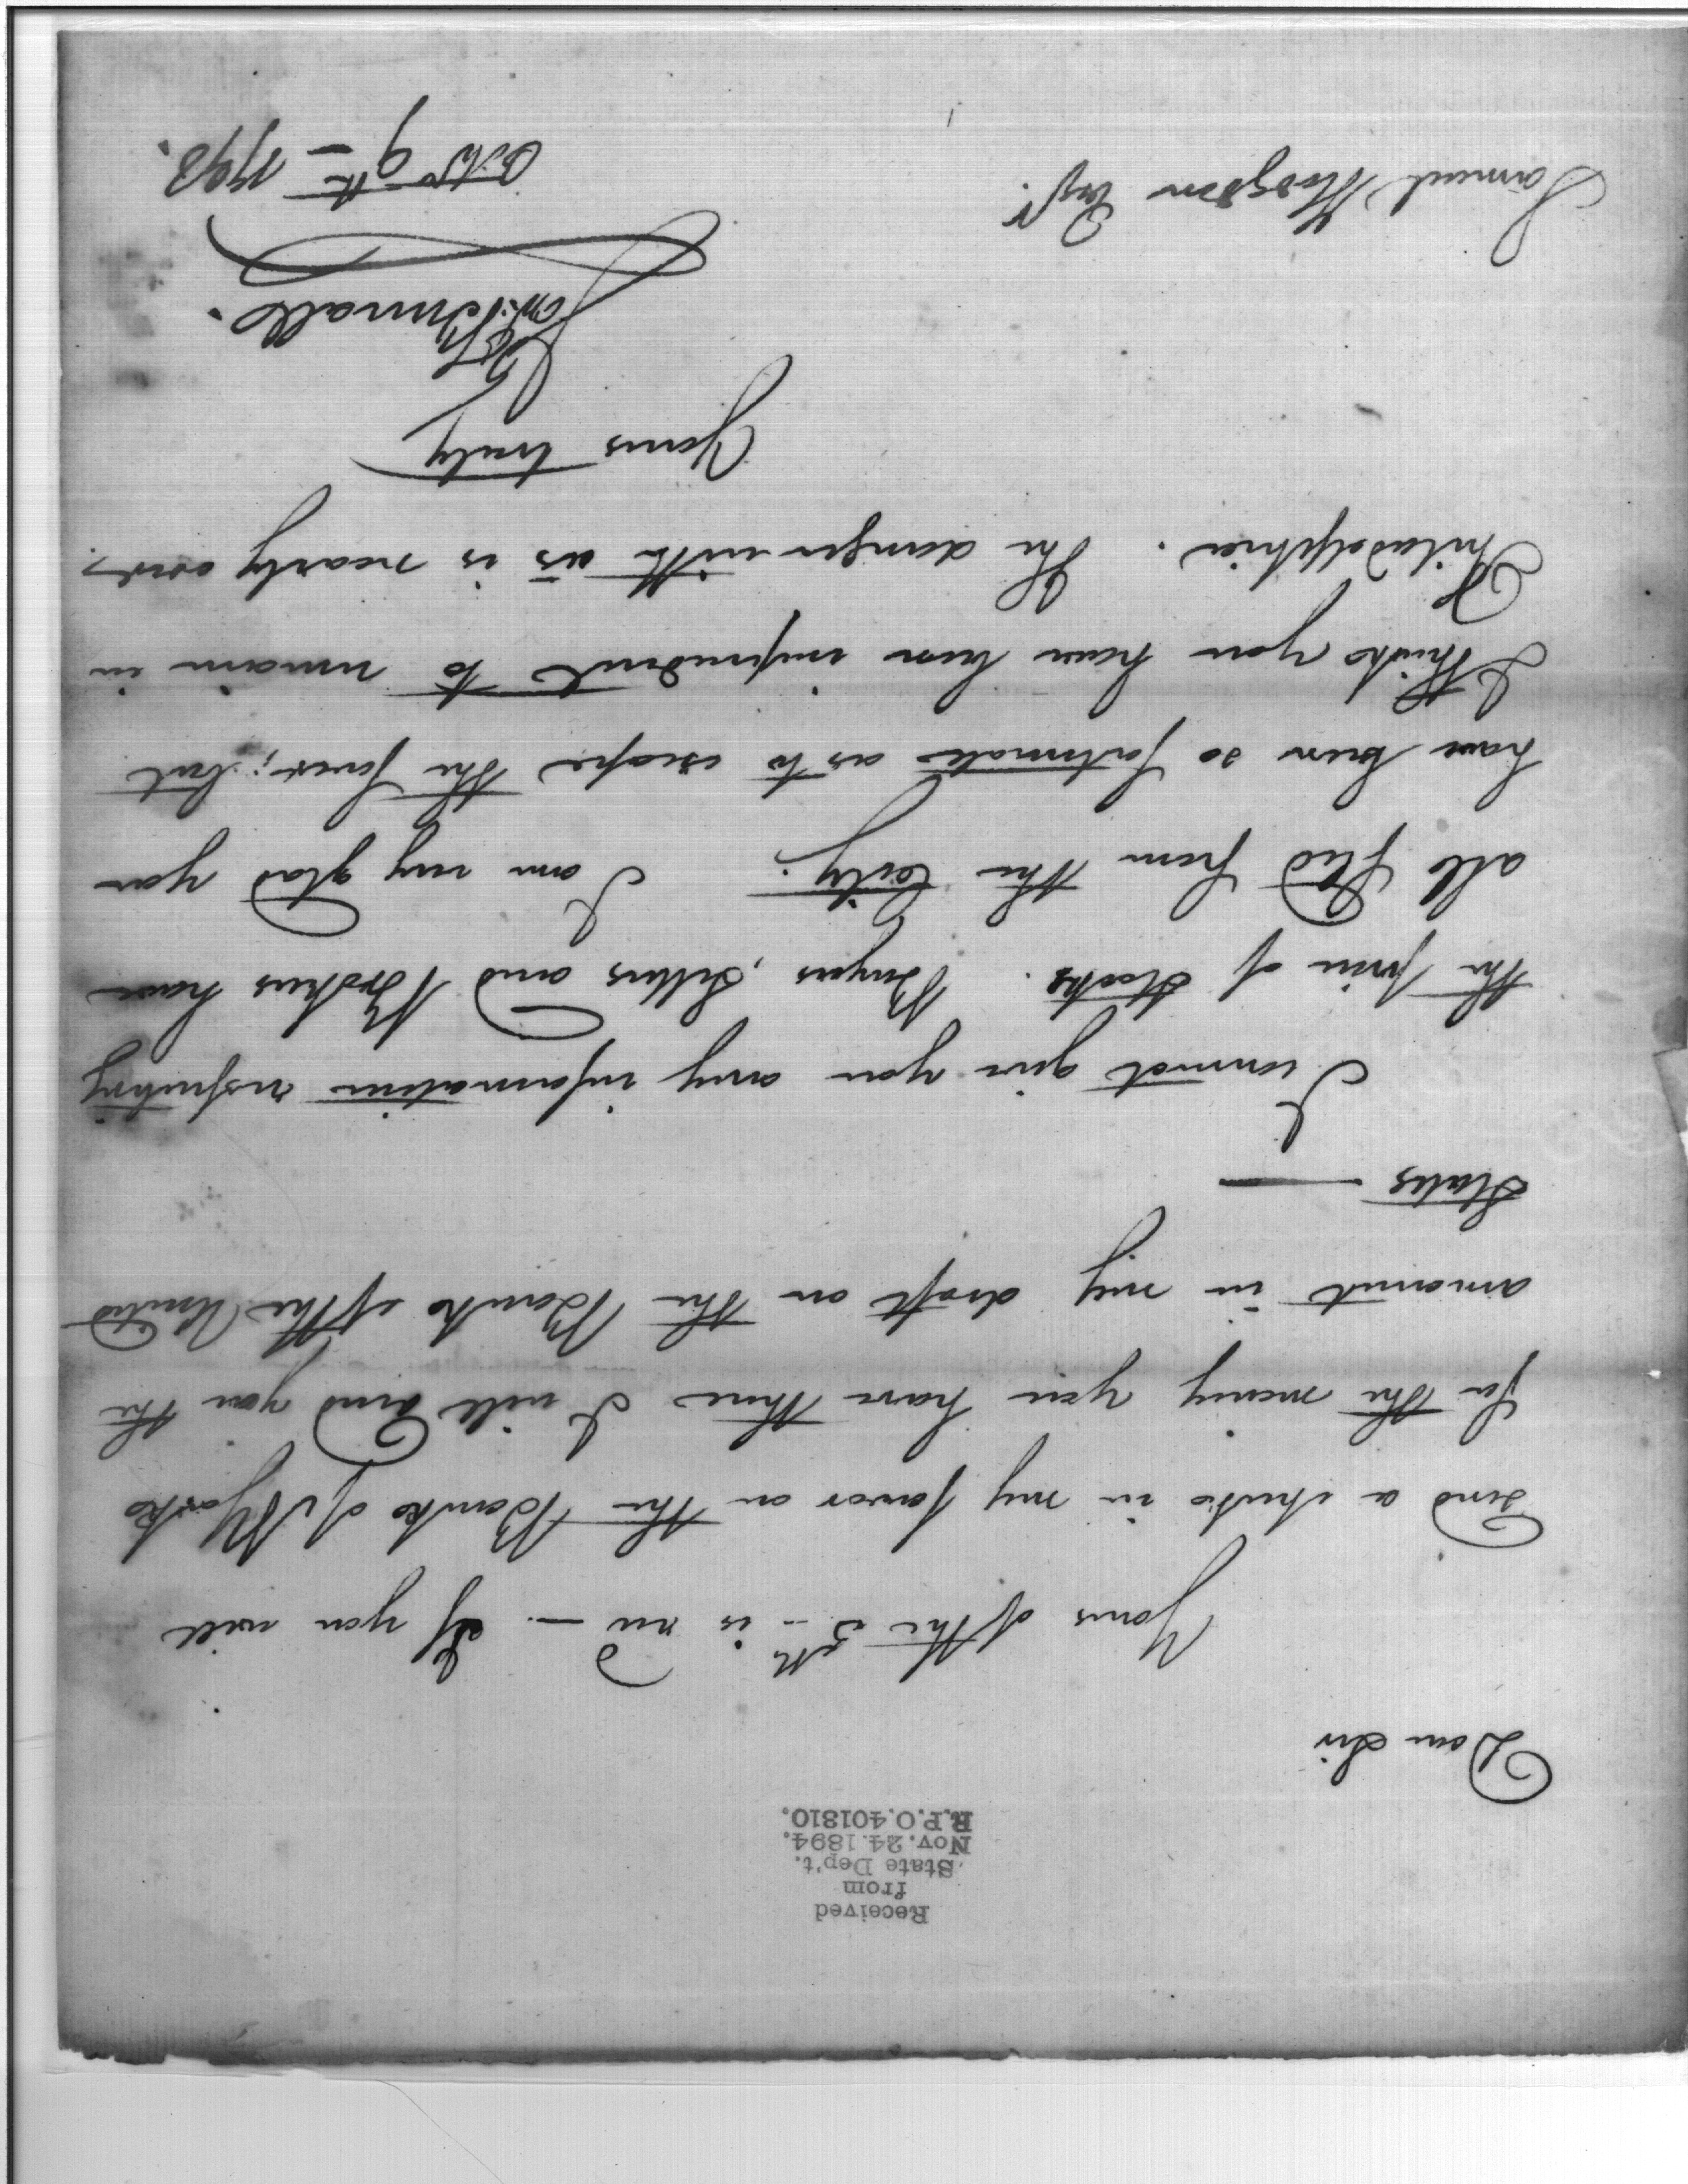 Received
from
State Dep't.
Nov. 24. 1894.
R.P.O. 401810.
Dear Sir
Yours of the 5th is recd — If you will
send a check in my favor on the Bank of N York
for the money you have there I will send you the
amount in my draft on the Bank of the United
States —
I cannot give you any information respecting
the price of Stocks. Buyers, Sellers and Brokers have
all fled from the City. I am very glad you
have been so fortunate as to escape the fever; but
I think you have been imprudent to remain in
Philadelphia. The danger with us is nearly over.
Yours truly
Octo 9th — 1798.
Samuel Hodgdon Esqr.